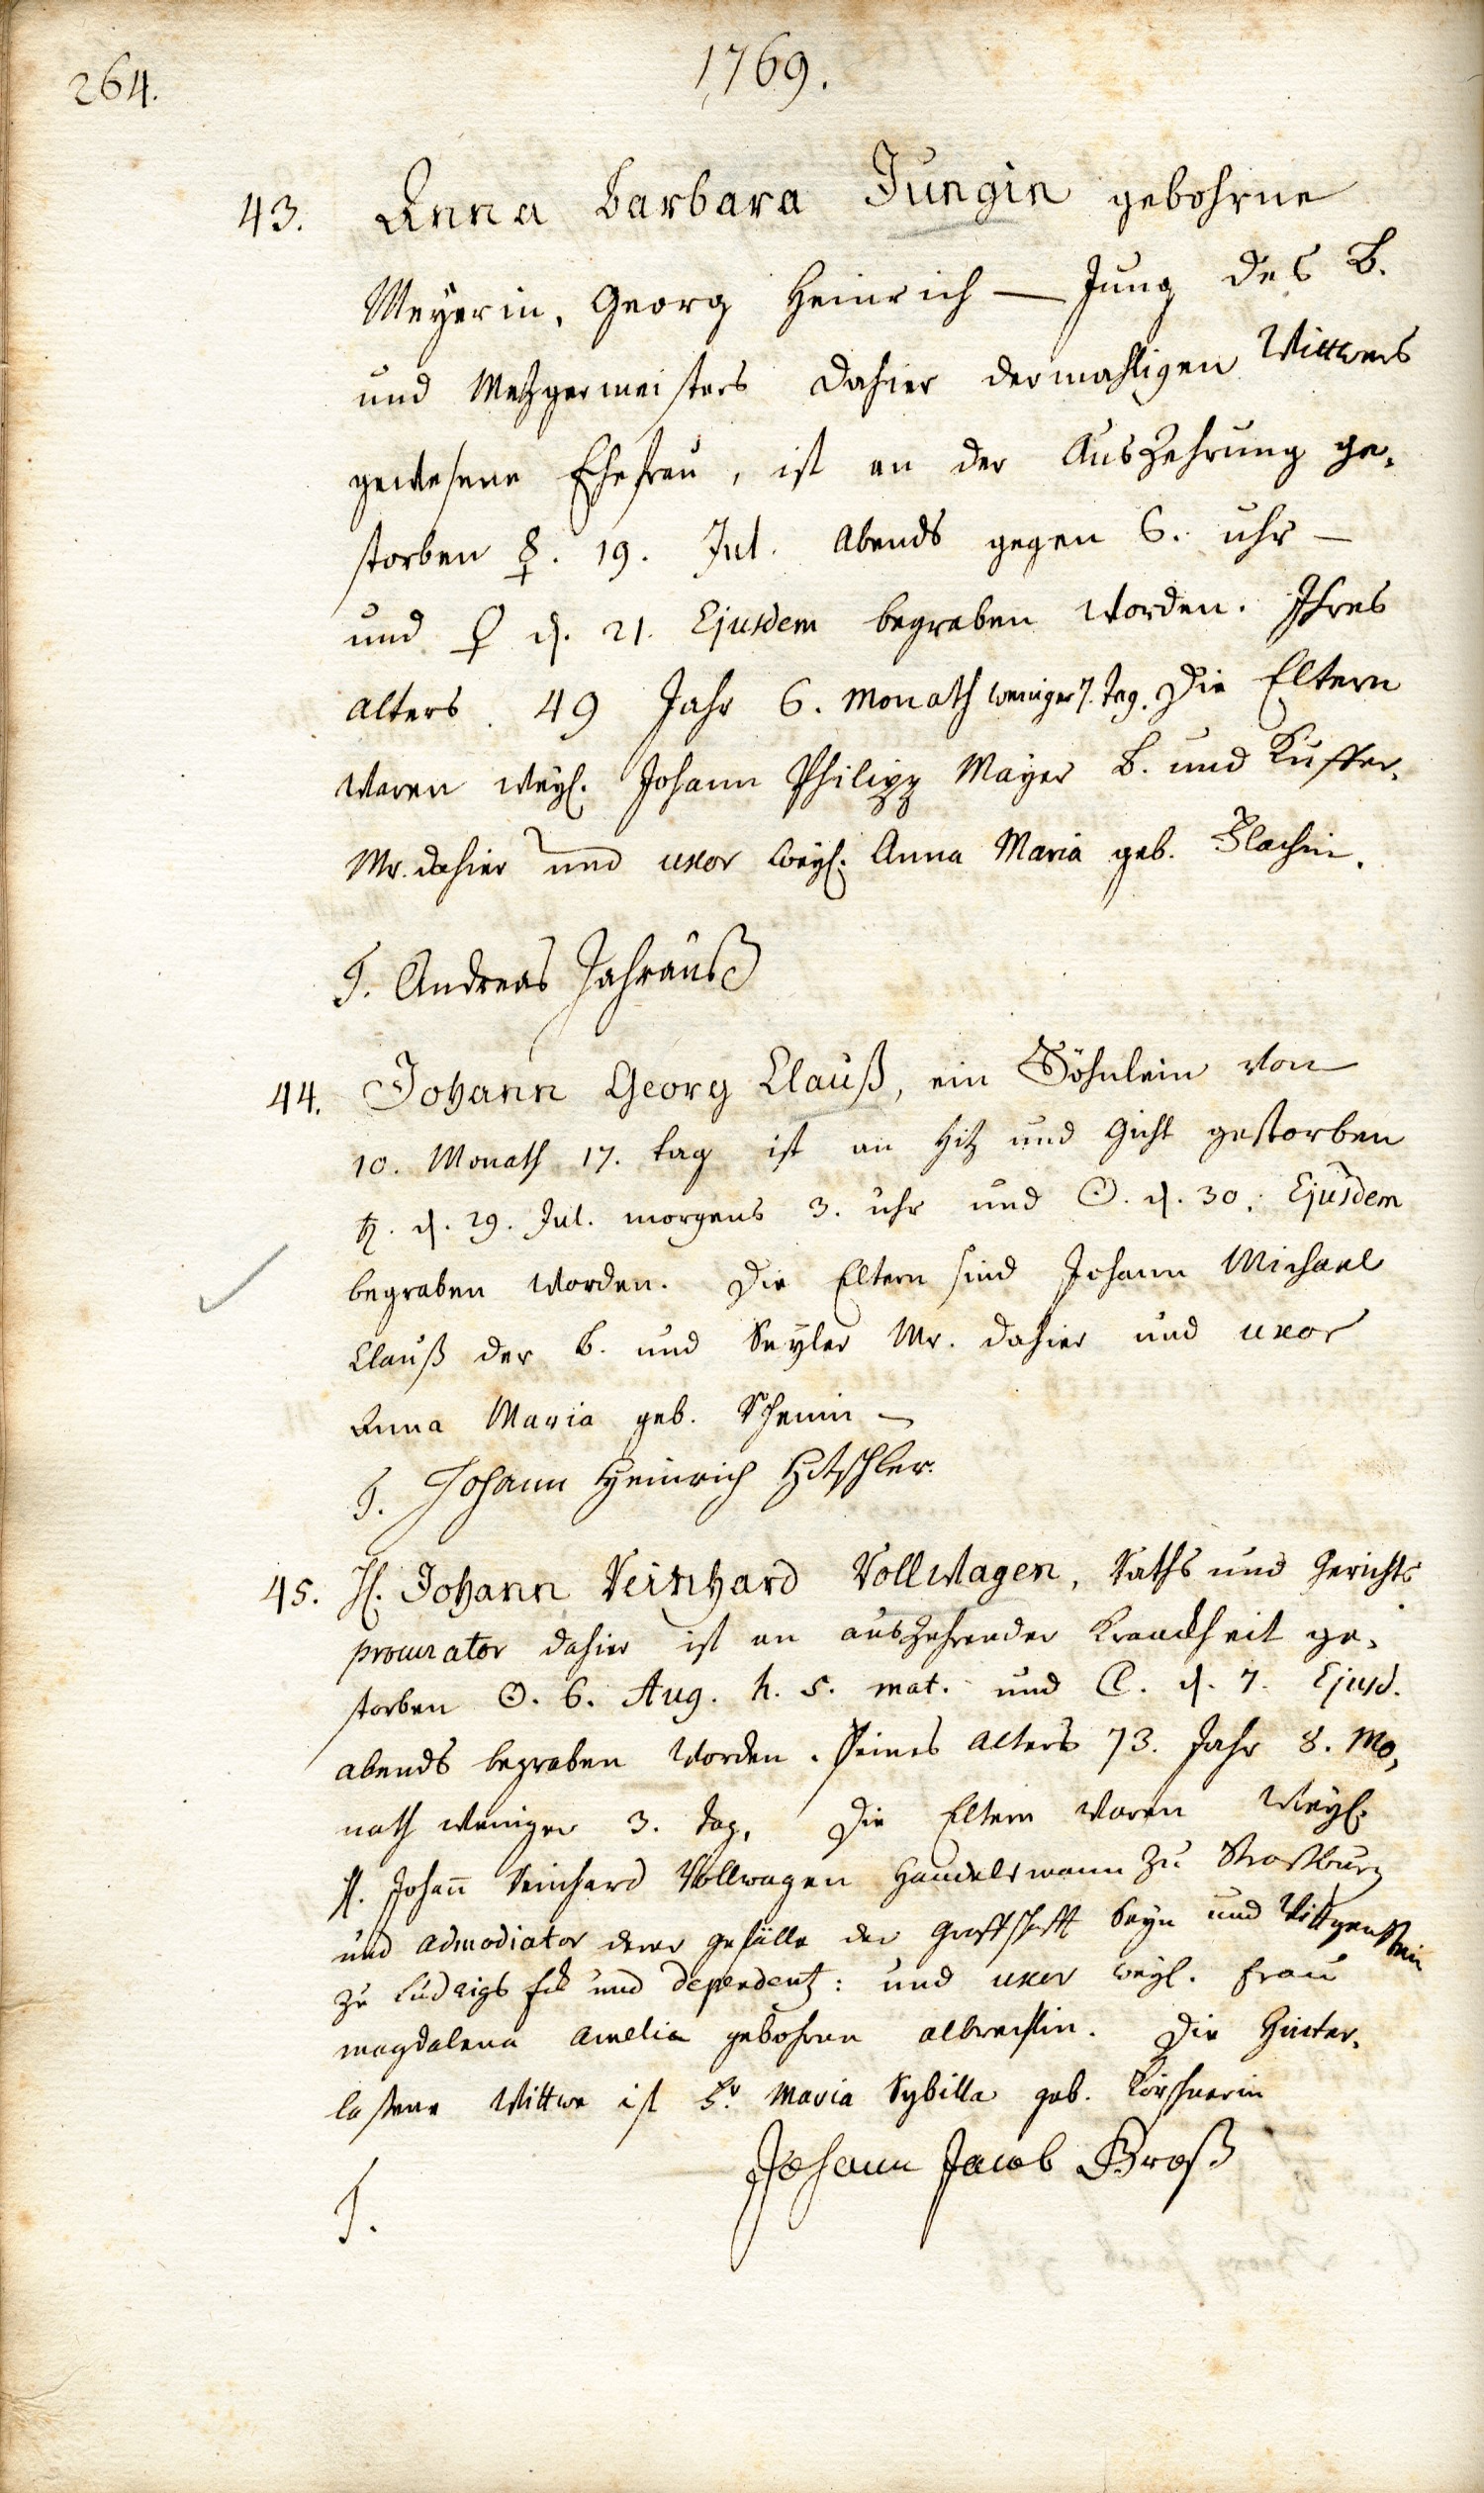 264.
1769.
43. Anna Barbara Jungin gebohrne
Meÿerin, Georg Heinrich — Jung des B.
und Metzgermeisters dahier dermahligen Wittwers
gewesene Ehefrau, ist an der Auszehrung ge-
storben ☿. 19. Jul. Abends gegen 6. uhr —
und ♀ d. 21. Ejusdem begraben worden. Ihres
alters 49 Jahr 6. Monath weniger 7. tag. Die Eltern
waren weyl. Johann Philipp Mayer B. und Kuffer-
Mr. dahier und uxor weyl. Anna Maria geb.
T. Andreas Jahrauß
44. Johann Georg Clauß, ein Söhnlein von
10. Monath 17. tag ist an Hitz und Gicht gestorben
♄. d. 29. Jul. morgens 3. uhr und ☉. d. 30. Ejusdem
begraben worden. Die Eltern sind Johann Michael
Clauß der B. und Seyler Mr. dahier und uxor
Anna Maria geb.
T. Johann Heinrich Hitschler.
45. H. Johann Reinhard Vollwagen, Raths und Gerichts
procurator dahier ist an auszehrender Kranckheit ge-
storben ☉. 6. Aug. h. 5. mat. und ☾. d. 7. Ejusd.
abends begraben worden. Seines alters 73. Jahr 8. Mo-
nath weniger 3. tag. Die Eltern waren weyl.
H. Johañ Reinhard Vollwagen Handelsmann zu Straßburg
und admodiator derer gefälle der Graffschafft Sayn und Wittgenstein
zu und dependentz: und uxor weyl. Frau
magdalena amelia gebohrne albrechtin. Die Hinter-
laßene Wittwe ist Fr. Maria Sybilla geb. Kürschnerin
Johann Jacob Groß
T.